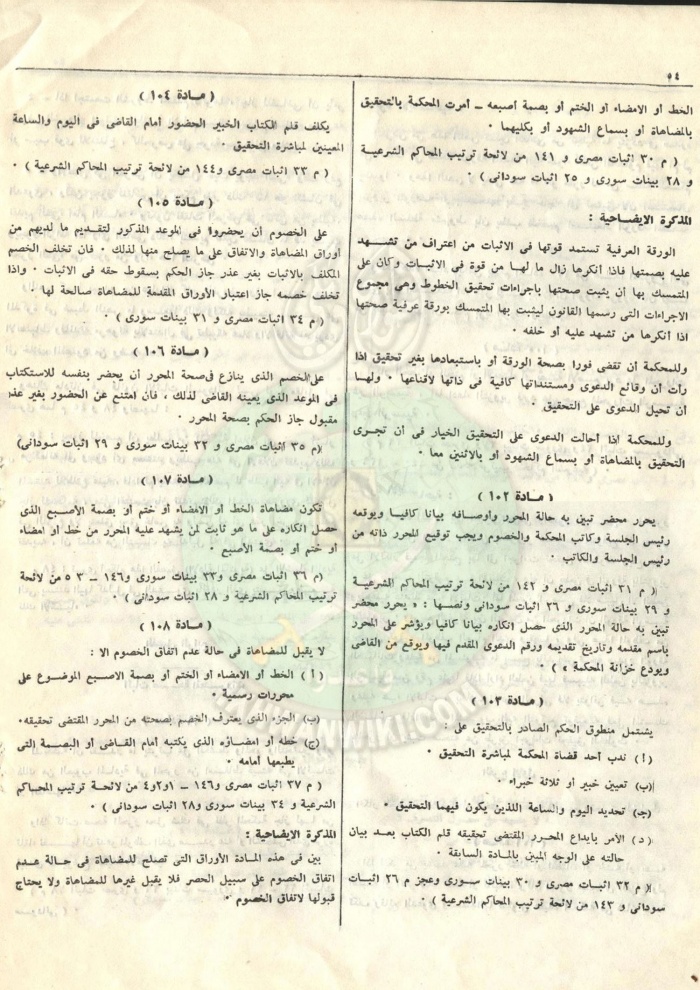 ٥٤
الخط أو الامضاء أو الختم أو بصمة أصبعه ــ أمرت المحكمة بالتحقيق
بالمضاهاة أو بسماع الشهود أو بكليهما ٠
( م ٣٠ اثبات مصرى و ١٤١ من لائحة ترتيب المحاكم الشرعية
و ٢٨ بينات سورى و ٢٥ اثبات سودانى ) ٠
المذكرة الايضاحية :
الورقة العرفية تستمد قوتها فى الاثبات من اعتراف من تشهد
عليه بصمتها فاذا أنكرها زال ما لهـا من قوة فى الاثبـات وكان على
المتمسك بها أن يثبت صحتها باجراءات تحقيق الخطوط وهى مجموع
الاجراءات التى رسمها القانون ليثبت بها المتمسك بورقة عرفية صحتها
اذا أنكرها من تشهد عليه أو خلفه ٠
وللمحكمة أن تقضى فورا بصحة الورقة أو باستبعادها بغير تحقيق اذا
رأت أن وقائع الدعوى ومستنداتها كافية فى ذاتها لاقناعها ٠ ولهـا
أن تحيل الدعوى على التحقيق ٠
وللمحكمة اذا أحالت الدعوى على التحقيق الخيار فى أن تجـرى
التحقيق بالمضاهاة أو بسماع الشهود أو بالاثنين معا ٠
( مـادة ١٠٢ )
يحرر محضر تبين به حالة المحرر وأوصافه بيانا كافيـا ويوقعه
رئيس الجلسة وكاتب المحكمة والخصوم ويجب توقيع المحرر ذاته من
رئيس الجلسة والكاتب ٠
( م ٣١ اثبات مصرى و ١٤٢ من لائحة ترتيب المحاكم الشرعيـة
و ٢٩ بينات سورى و ٢٦ اثبات سودانى ونصهـا : « يحرر محضر
تبين به حالة المحرر الذى حصل انكاره بيانا كافيا ويؤشر على المحرر
باسم مقدمه وتاريخ تقديمه ورقم الدعوى المقدم فيها ويوقع من القاضى
ويودع خزانة المحكمة » ) ٠
( مـادة ١٠٣ )
يشتمل منطوق الحكم الصادر بالتحقيق على :
( أ ) ندب أحد قضاة المحكمة لمباشرة التحقيق ٠
(ب) تعيين خبير أو ثلاثة خبراء ٠
(جـ) تحديد اليوم والساعة اللذين يكون فيهما التحقيق ٠
( د ) الأمر بايداع المحرر المقتضى تحقيقه قلم الكتاب بعـد بيان
حالته على الوجه المبين بالمـادة السابقة ٠
( م ٣٢ اثبـات مصرى و ٣٠ بينات سـورى وعجز م ٢٦ اثبـات
سودانى و ١٤٣ من لائحة ترتيب المحاكم الشرعية ) ٠
( مـادة ١٠٤ )
يكلف قلم الكتاب الخبير الحضور أمام القاضى فى اليوم والساعة
المعينين لمباشرة التحقيق ٠
( م ٣٣ اثبات مصرى و١٤٤ من لائحة ترتيب المحاكم الشرعية ) ٠
( مـادة ١٠٥ )
على الخصوم أن يحضروا فى الموعد المذكور لتقديم ما لديهم من
أوراق المضاهاة والاتفاق على ما يصلح منها لذلك ٠ فان تخلف الخصم
المكلف بالاثبات بغير عذر جاز الحكم بسقوط حقه فى الاثبات ٠ واذا
تخلف خصمه جاز اعتبار الأوراق المقدمة للمضاهاة صالحة لها ٠
( م ٣٤ اثبات مصرى و ٣١ بينات سورى ) ٠
( مـادة ١٠٦ )
على الخصم الذى ينازع فى صحة المحرر أن يحضر بنفسه للاستكتاب
فى الموعد الذى يعينه القاضى لذلك ، فان امتنع عن الحضور بغير عذر
مقبول جاز الحكم بصحة المحرر ٠
(م ٣٥ اثبات مصرى و ٣٢ بينات سورى و ٢٩ اثبات سودانى)
( مـادة ١٠٧ )
تكون مضاهاة الخط أو الامضاء أو ختم أو بصمة الأصبع الذى
حصل انكاره على ما هو ثابت لمن يشهد عليه المحرر من خط أو امضاء
أو ختم أو بصمة الأصبع ٠
(م ٣٦ اثبات مصرى و٣٣ بينات سورى و١٤٦ ــ ٣ ٥ من لائحة
ترتيب المحاكم الشرعية و ٢٨ اثبات سودانى ) ٠
( مـادة ١٠٨ )
لا يقبل للمضاهاة فى حالة عدم اتفاق الخصوم الا :
( أ ) الخط أو الامضاء أو الختم أو بصمة الاصبع الموضوع على
محررات رسمية ٠
(ب) الجزء الذى يعترف الخصم بصحته من المحرر المقتضى تحقيقه٠
(ج) خطه أو امضاؤه الذى يكتبه أمام القاضى أو البصمة التى
يطبعها أمامه ٠
(م ٣٧ اثبات مصرى و١٤٦ ــ ١و٢و٤ من لائحـة ترتيب المحـاكم
الشرعية و ٣٤ بينات سورى و٢٨ اثبات سودانى ) ٠
المذكرة الايضاحية :
بين فى هذه المادة الأوراق التى تصلح للمضاهاة فى حالة عـدم
اتفاق الخصوم على سبيل الحصر فلا يقبل غيرها للمضاهاة ولا يحتاج
قبولها لاتفاق الخصوم ٠